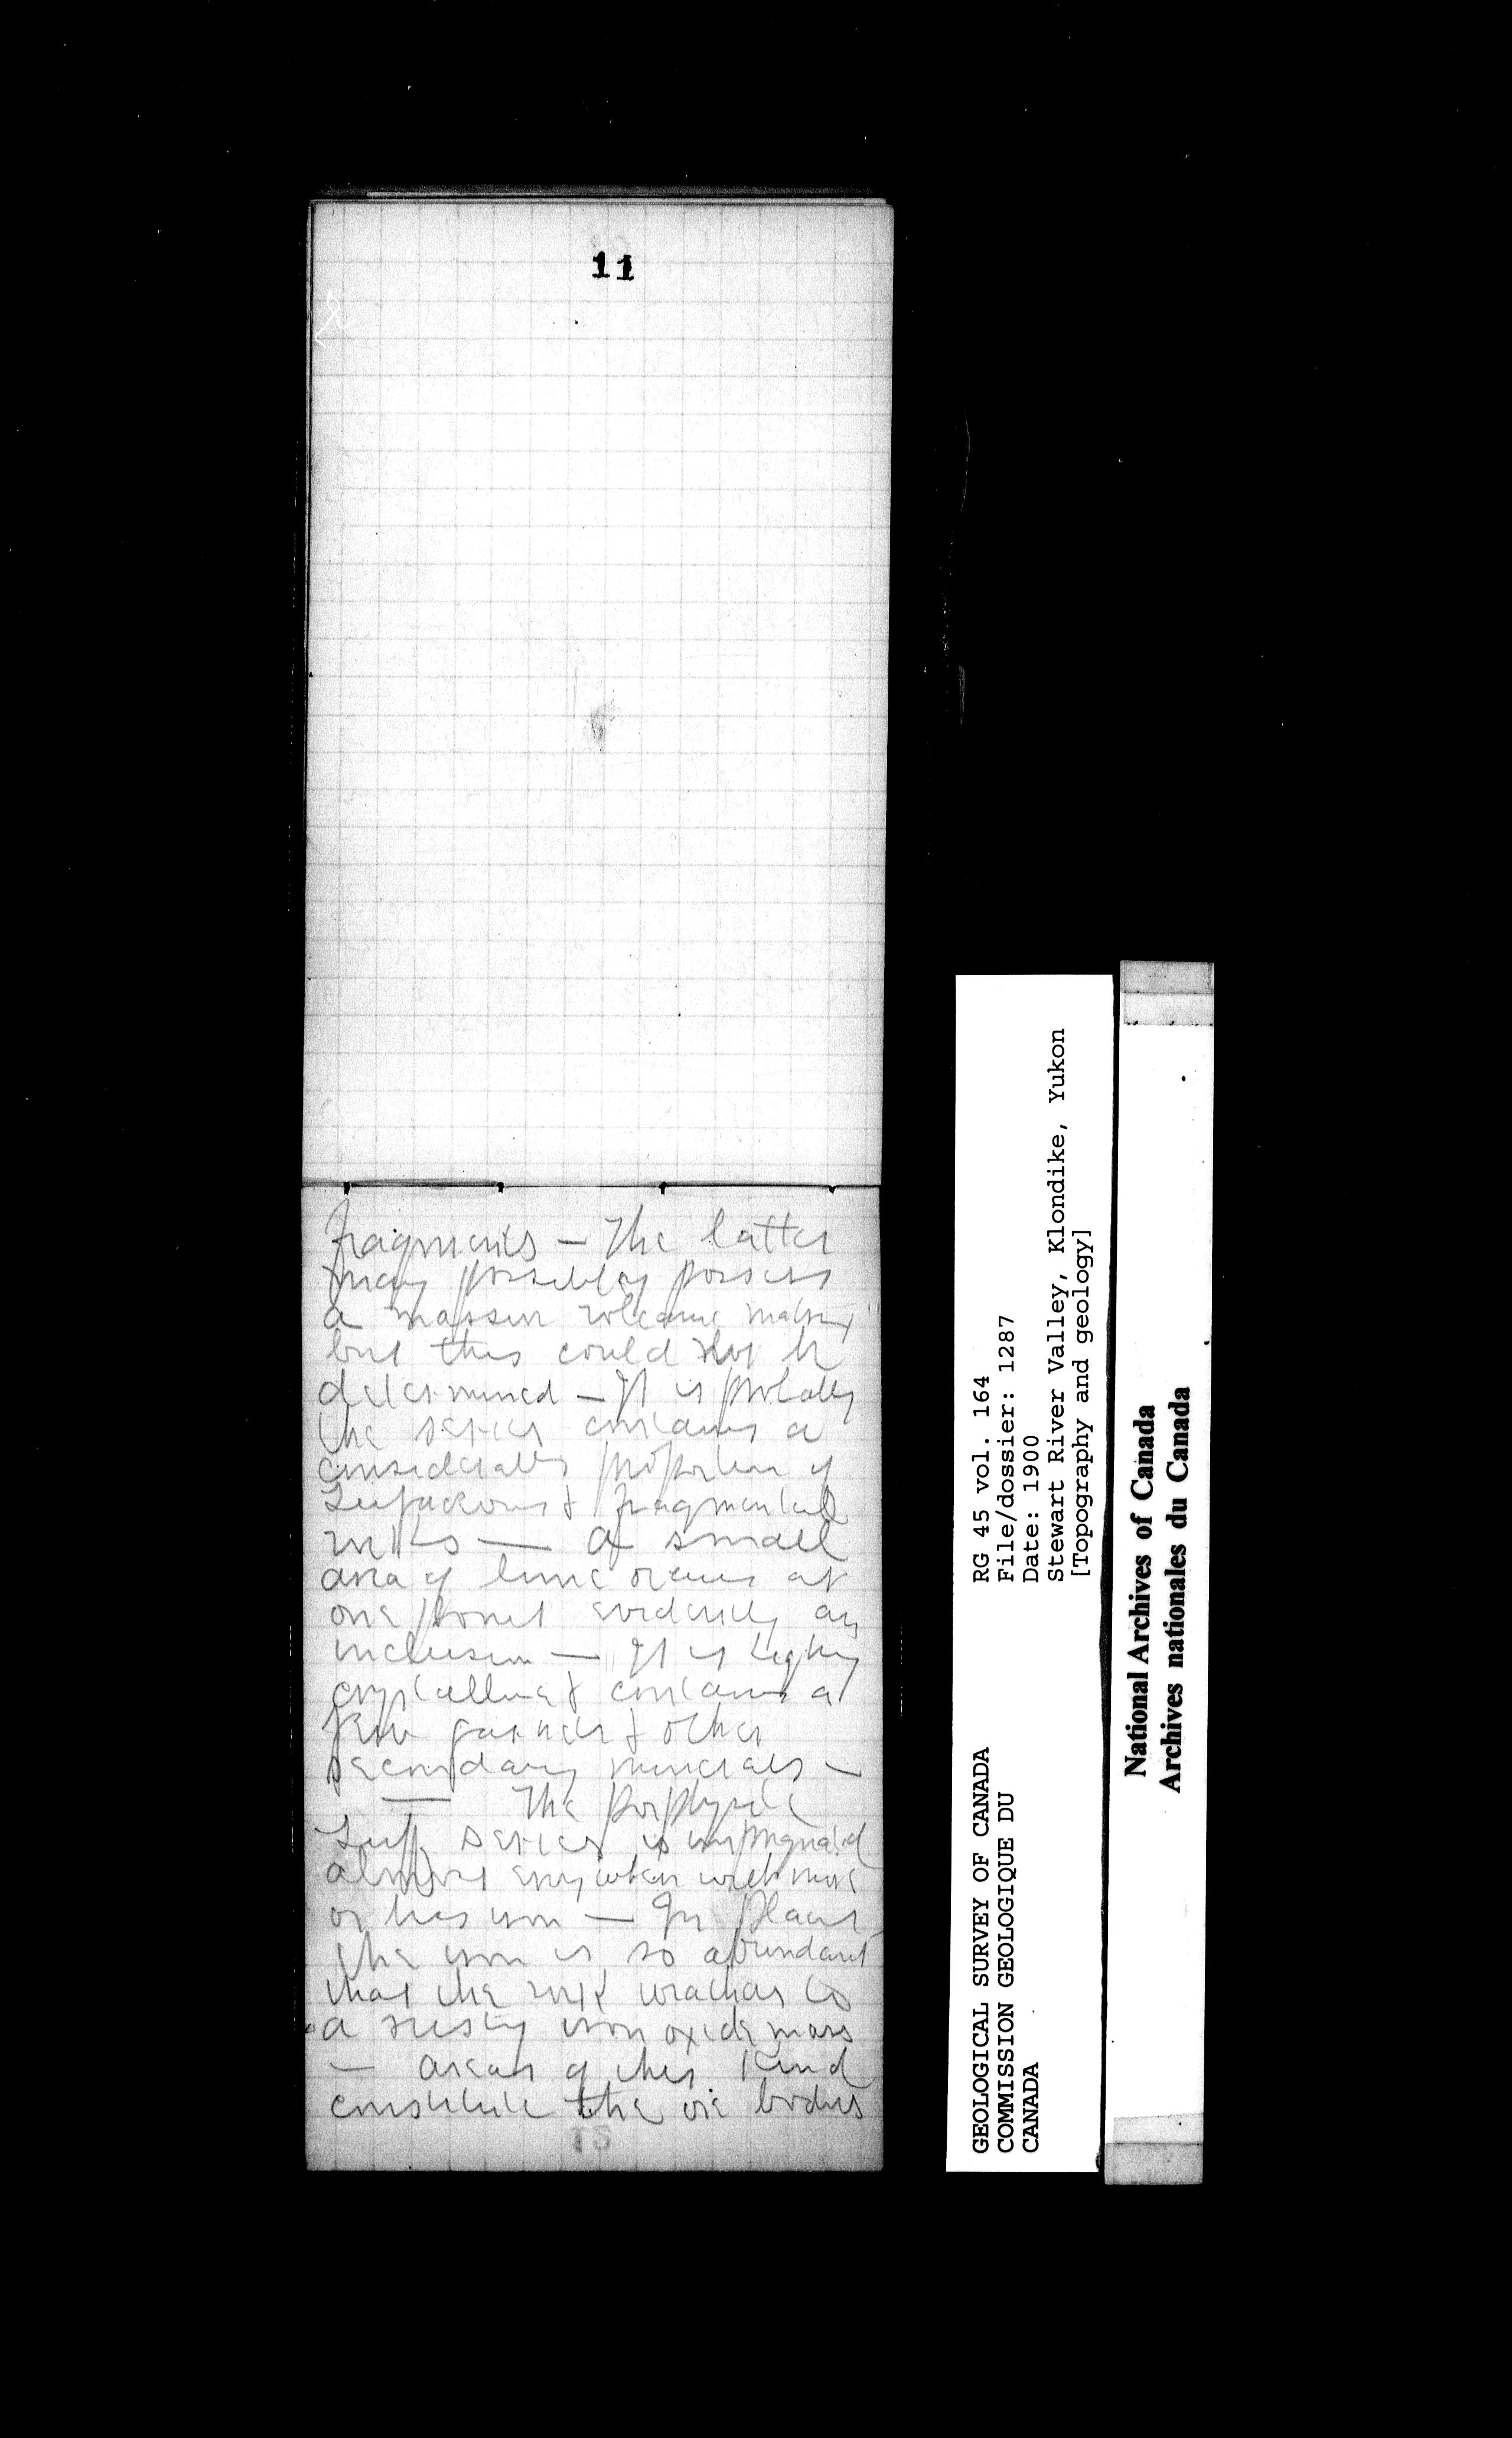 11
fragments — The latter
may possibley possess
a massive volcanic matrix
but this could not be
determined — It is probably
the series contains a
considerable proportion of
Tufaceous & fragmental
rocks — A small
area of lime occurs at
one point evidently an
inclusion — It is highly
crystalline & contains a
few garnets & other
secondary minerals —
— The porphyrite
Tuff series is impregnated
almost everywhere with more
or less iron — In places
the iron is so abundant
that the rock weathers to
a rusty iron oxide mass
— areas of this kind
constitute the ore bodies
12
GEOLOGICAL SURVEY OF CANADA
COMMISSION GEOLOGIQUE DU
CANADA
RG 45 vol. 164
File/dossier: 1287
Date: 1900
Stewart River Valley, Klondike, Yukon
[Topography and geology]
National Archives of Canada
Archives nationales du Canada